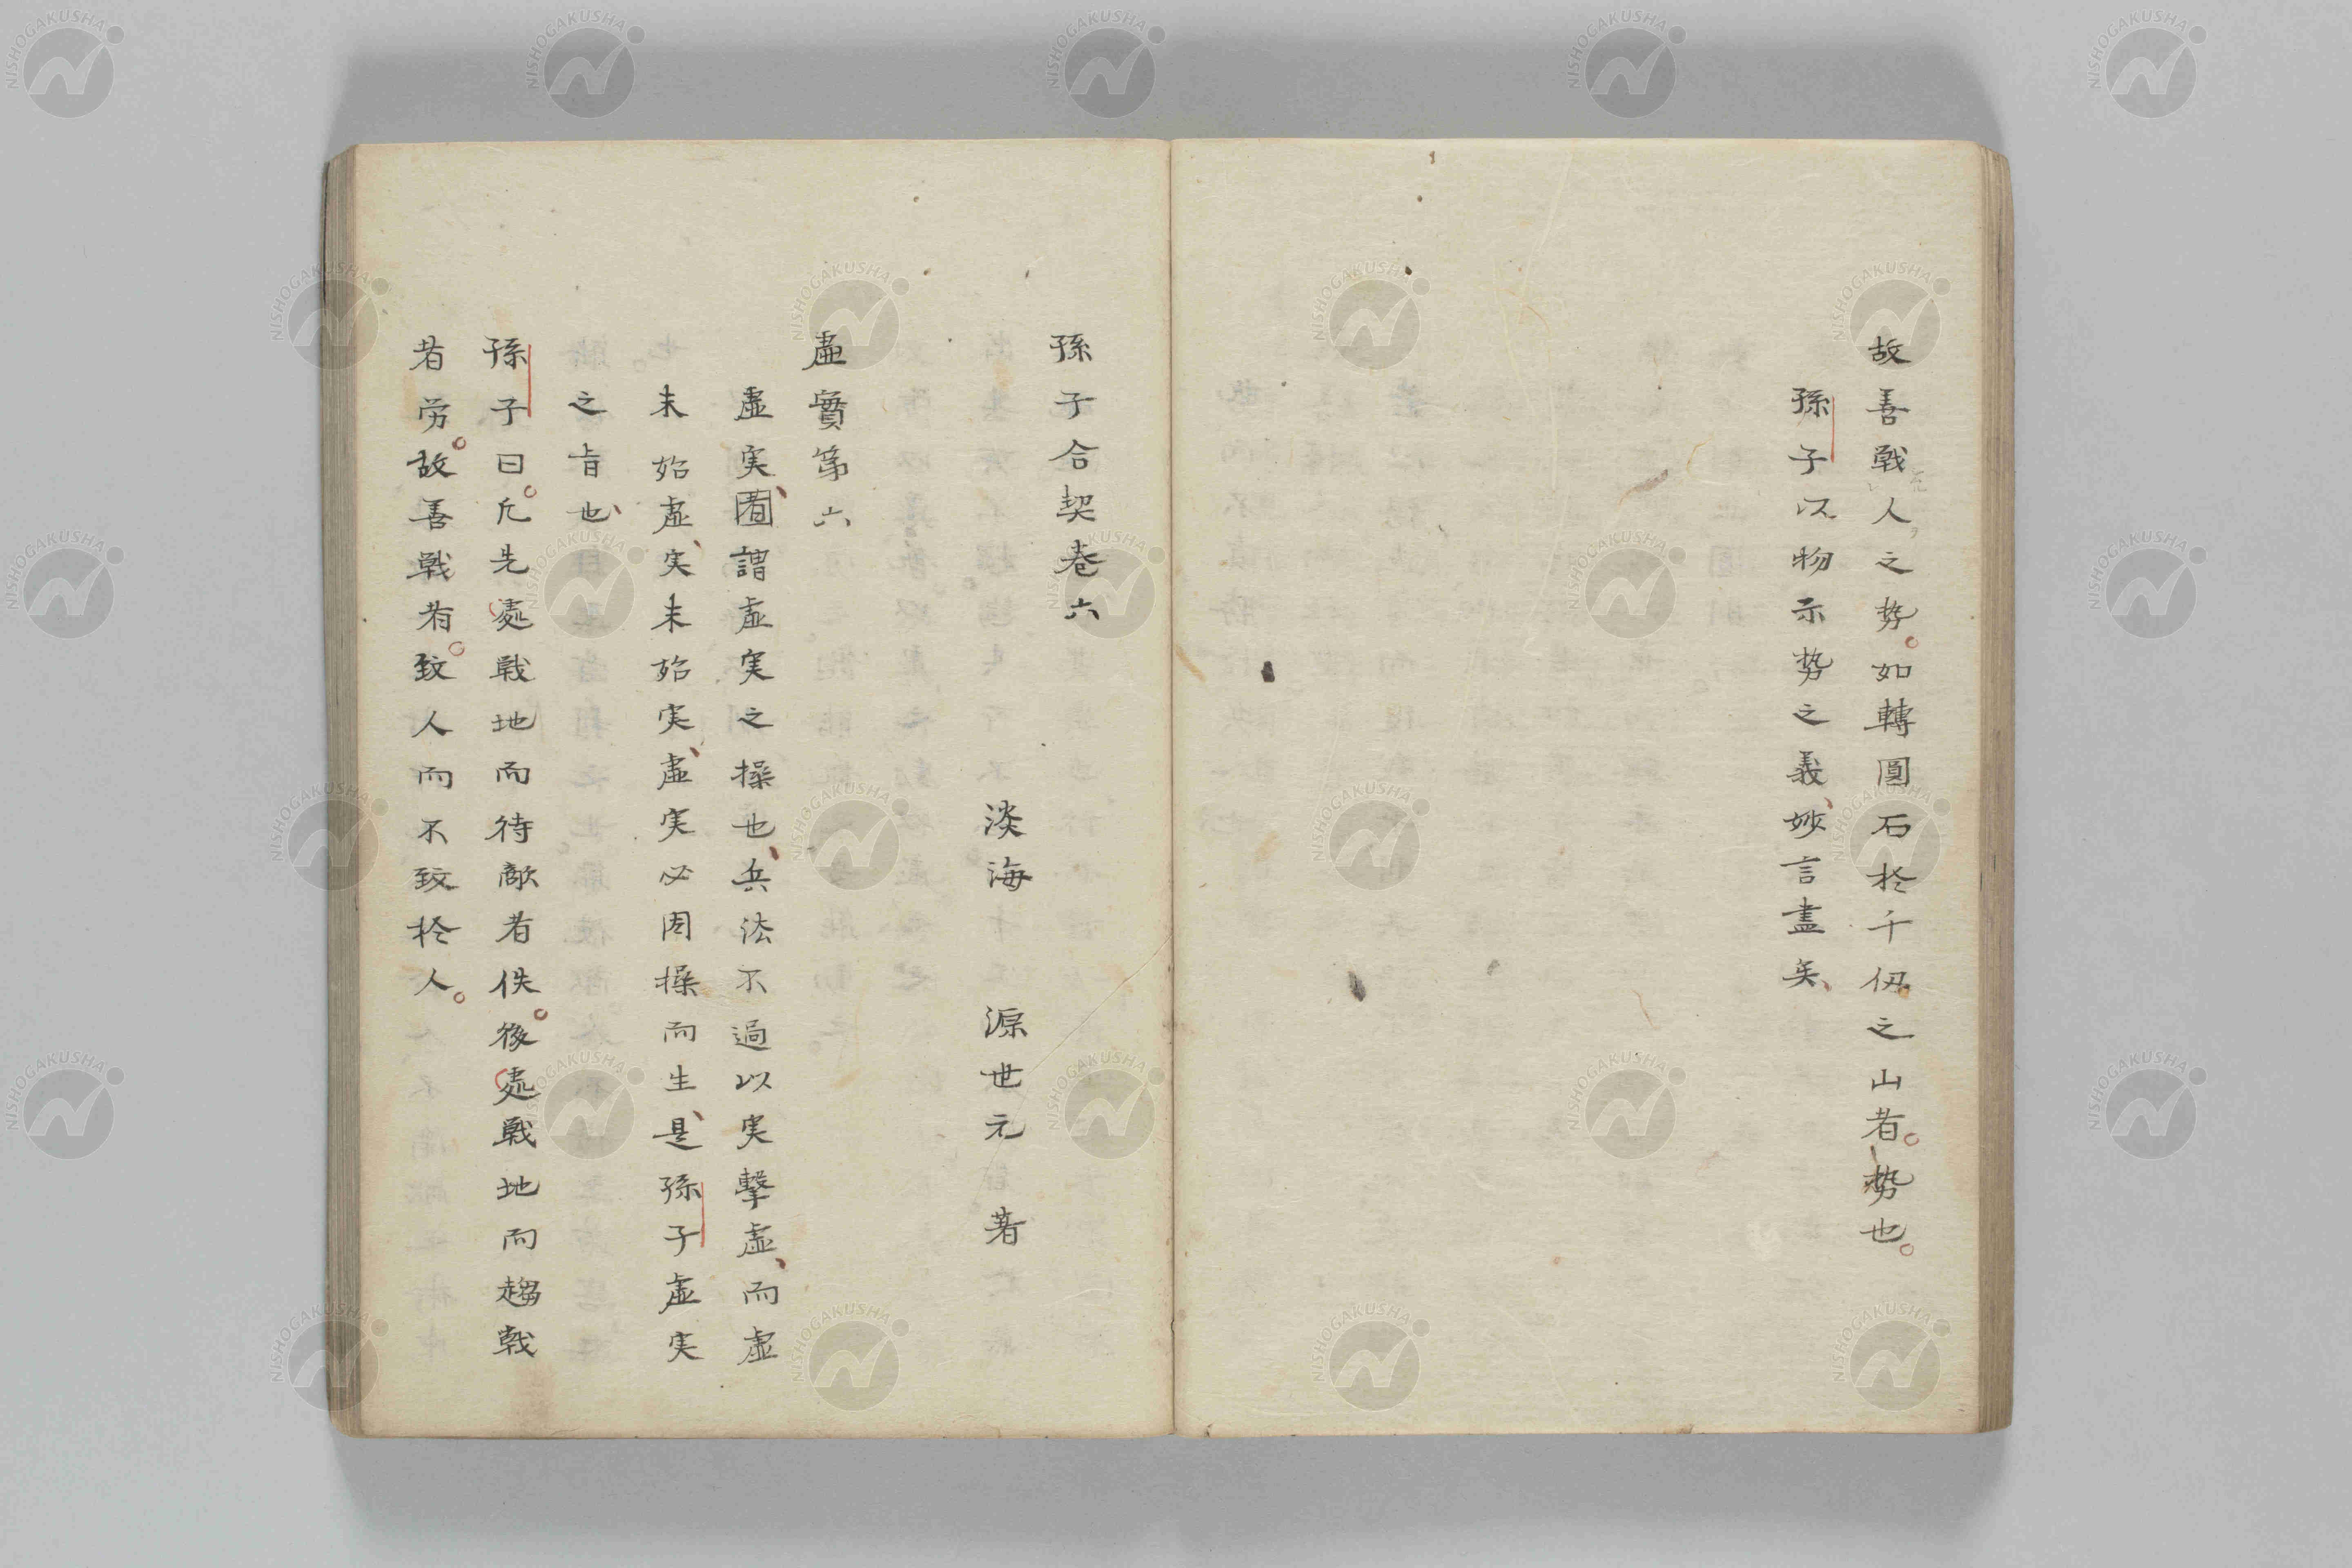 故善戰人之勢。如轉圓石於千仭之山者。勢也。
孫子以物示勢之義、妙言盡矣、
孫子合契卷六
淡海 源世元 著
虛實第六
虛実、者謂虛実之操也、兵法不過以実擊虛、而虛
未始虛、実未始実、虛実必因操而生、是孫子虛実
之旨也、
孫子曰。凡先處戰地而待敵者佚。後處戰地而趨戰
者労。故善戰者。致人而不致於人。
NISHOGAKUSHA